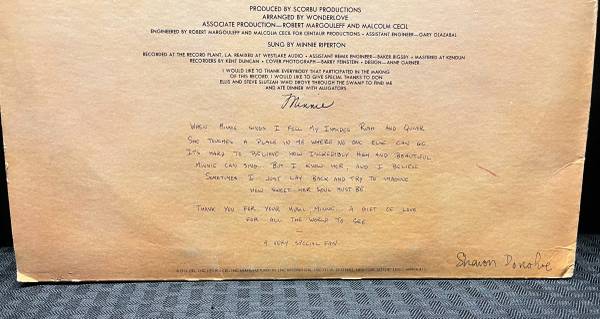 PRODUCED BY SCORBU PRODUCTIONS
ARRANGED BY WONDERLOVE
ASSOCIATE PRODUCTION—ROBERT MARGOULEFF AND MALCOLM CECIL
ENGINEERED BY ROBERT MARGOULEFF AND MALCOLM CECIL FOR CENTAUR PRODUCTIONS • ASSISTANT ENGINEER—GARY OLAZABAL
SUNG BY MINNIE RIPERTON
RECORDED AT THE RECORD PLANT, L.A. REMIXED AT WESTLAKE AUDIO • ASSISTANT REMIX ENGINEER—BAKER BIGSBY • MASTERED AT KENDUN
RECORDERS BY KENT DUNCAN • COVER PHOTOGRAPH—BARRY FEINSTEIN • DESIGN—ANNE GARNER
I WOULD LIKE TO THANK EVERYBODY THAT PARTICIPATED IN THE MAKING
OF THIS RECORD. I WOULD LIKE TO GIVE SPECIAL THANKS TO DON
ELLIS AND STEVE SLUTZAH WHO DROVE THROUGH THE SWAMP TO FIND ME
AND ATE DINNER WITH ALLIGATORS.
Minnie
WHEN MINNIE SINGS I FEEL MY INSIDES RUSH AND QUIVER
SHE TOUCHES A PLACE IN ME WHERE NO ONE ELSE CAN GO
IT'S HARD TO BELIEVE HOW INCREDIBLY HIGH AND BEAUTIFUL
MINNIE CAN SING. BUT I KNOW HER, AND I BELIEVE
SOMETIMES I JUST LAY BACK AND TRY TO IMAGINE
HOW SWEET HER SOUL MUST BE
THANK YOU FOR YOUR MUSIC, MINNIE, A GIFT OF LOVE
FOR ALL THE WORLD TO SEE
—
A VERY SPECIAL FAN
Sharon Donohue